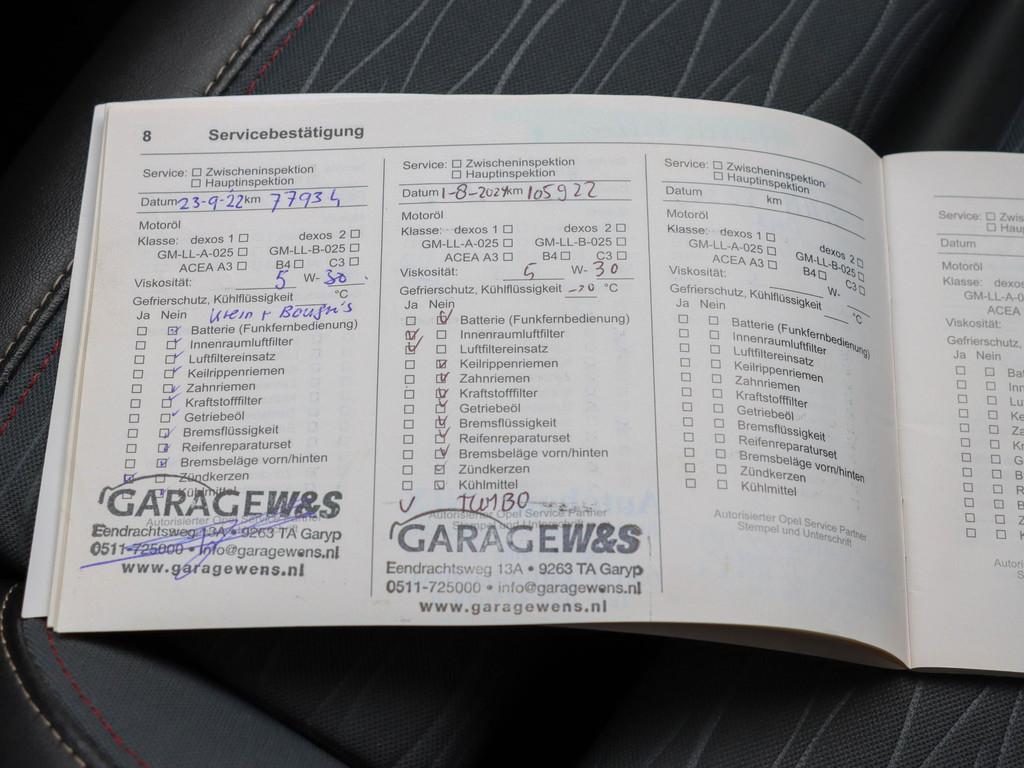 8 Servicebestätigung
Service: ☐ Zwischeninspektion
☐ Hauptinspektion
Datum 23-9-22 km 77934
Motoröl
Klasse: dexos 1 ☐ dexos 2 ☐
GM-LL-A-025 ☐ GM-LL-B-025 ☐
ACEA A3 ☐ B4 ☐ C3 ☐
Viskosität: 5 W- 30
Gefrierschutz, Kühlflüssigkeit ____ °C
Ja Nein klein + Bougi's
Batterie (Funkfernbedienung)
Innenraumluftfilter
Luftfiltereinsatz
Keilrippenriemen
Zahnriemen
Kraftstofffilter
Getriebeöl
Bremsflüssigkeit
Reifenreparaturset
Bremsbeläge vorn/hinten
Zündkerzen
Kühlmittel
GARAGE W&S
Autorisierter Opel Service Partner
Eendrachtsweg 13A • 9263 TA Garyp
0511-725000 • info@garagewens.nl
www.garagewens.nl
Service: ☐ Zwischeninspektion
☐ Hauptinspektion
Datum 1-8-2024 km 105922
Motoröl
Klasse: dexos 1 ☐ dexos 2 ☐
GM-LL-A-025 ☐ GM-LL-B-025 ☐
ACEA A3 ☐ B4 ☐ C3 ☐
Viskosität: 5 W- 30
Gefrierschutz, Kühlflüssigkeit -20 °C
Ja Nein
Batterie (Funkfernbedienung)
Innenraumluftfilter
Luftfiltereinsatz
Keilrippenriemen
Zahnriemen
Kraftstofffilter
Getriebeöl
Bremsflüssigkeit
Reifenreparaturset
Bremsbeläge vorn/hinten
Zündkerzen
Kühlmittel
✓ TURBO
Autorisierter Opel Service Partner
Stempel und Unterschrift
GARAGE W&S
Eendrachtsweg 13A • 9263 TA Garyp
0511-725000 • info@garagewens.nl
www.garagewens.nl
Service: ☐ Zwischeninspektion
☐ Hauptinspektion
Datum km
Motoröl
Klasse: dexos 1 ☐ dexos 2 ☐
GM-LL-A-025 ☐ GM-LL-B-025 ☐
ACEA A3 ☐ B4 ☐ C3 ☐
Viskosität: W-
Gefrierschutz, Kühlflüssigkeit ____ °C
Ja Nein
Batterie (Funkfernbedienung)
Innenraumluftfilter
Luftfiltereinsatz
Keilrippenriemen
Zahnriemen
Kraftstofffilter
Getriebeöl
Bremsflüssigkeit
Reifenreparaturset
Bremsbeläge vorn/hinten
Zündkerzen
Kühlmittel
Autorisierter Opel Service Partner
Stempel und Unterschrift
Service: ☐ Zwis
☐ Hau
Datum
Motoröl
Klasse: dexos
GM-LL-A-0
ACEA
Viskosität:
Gefrierschutz,
Ja Nein